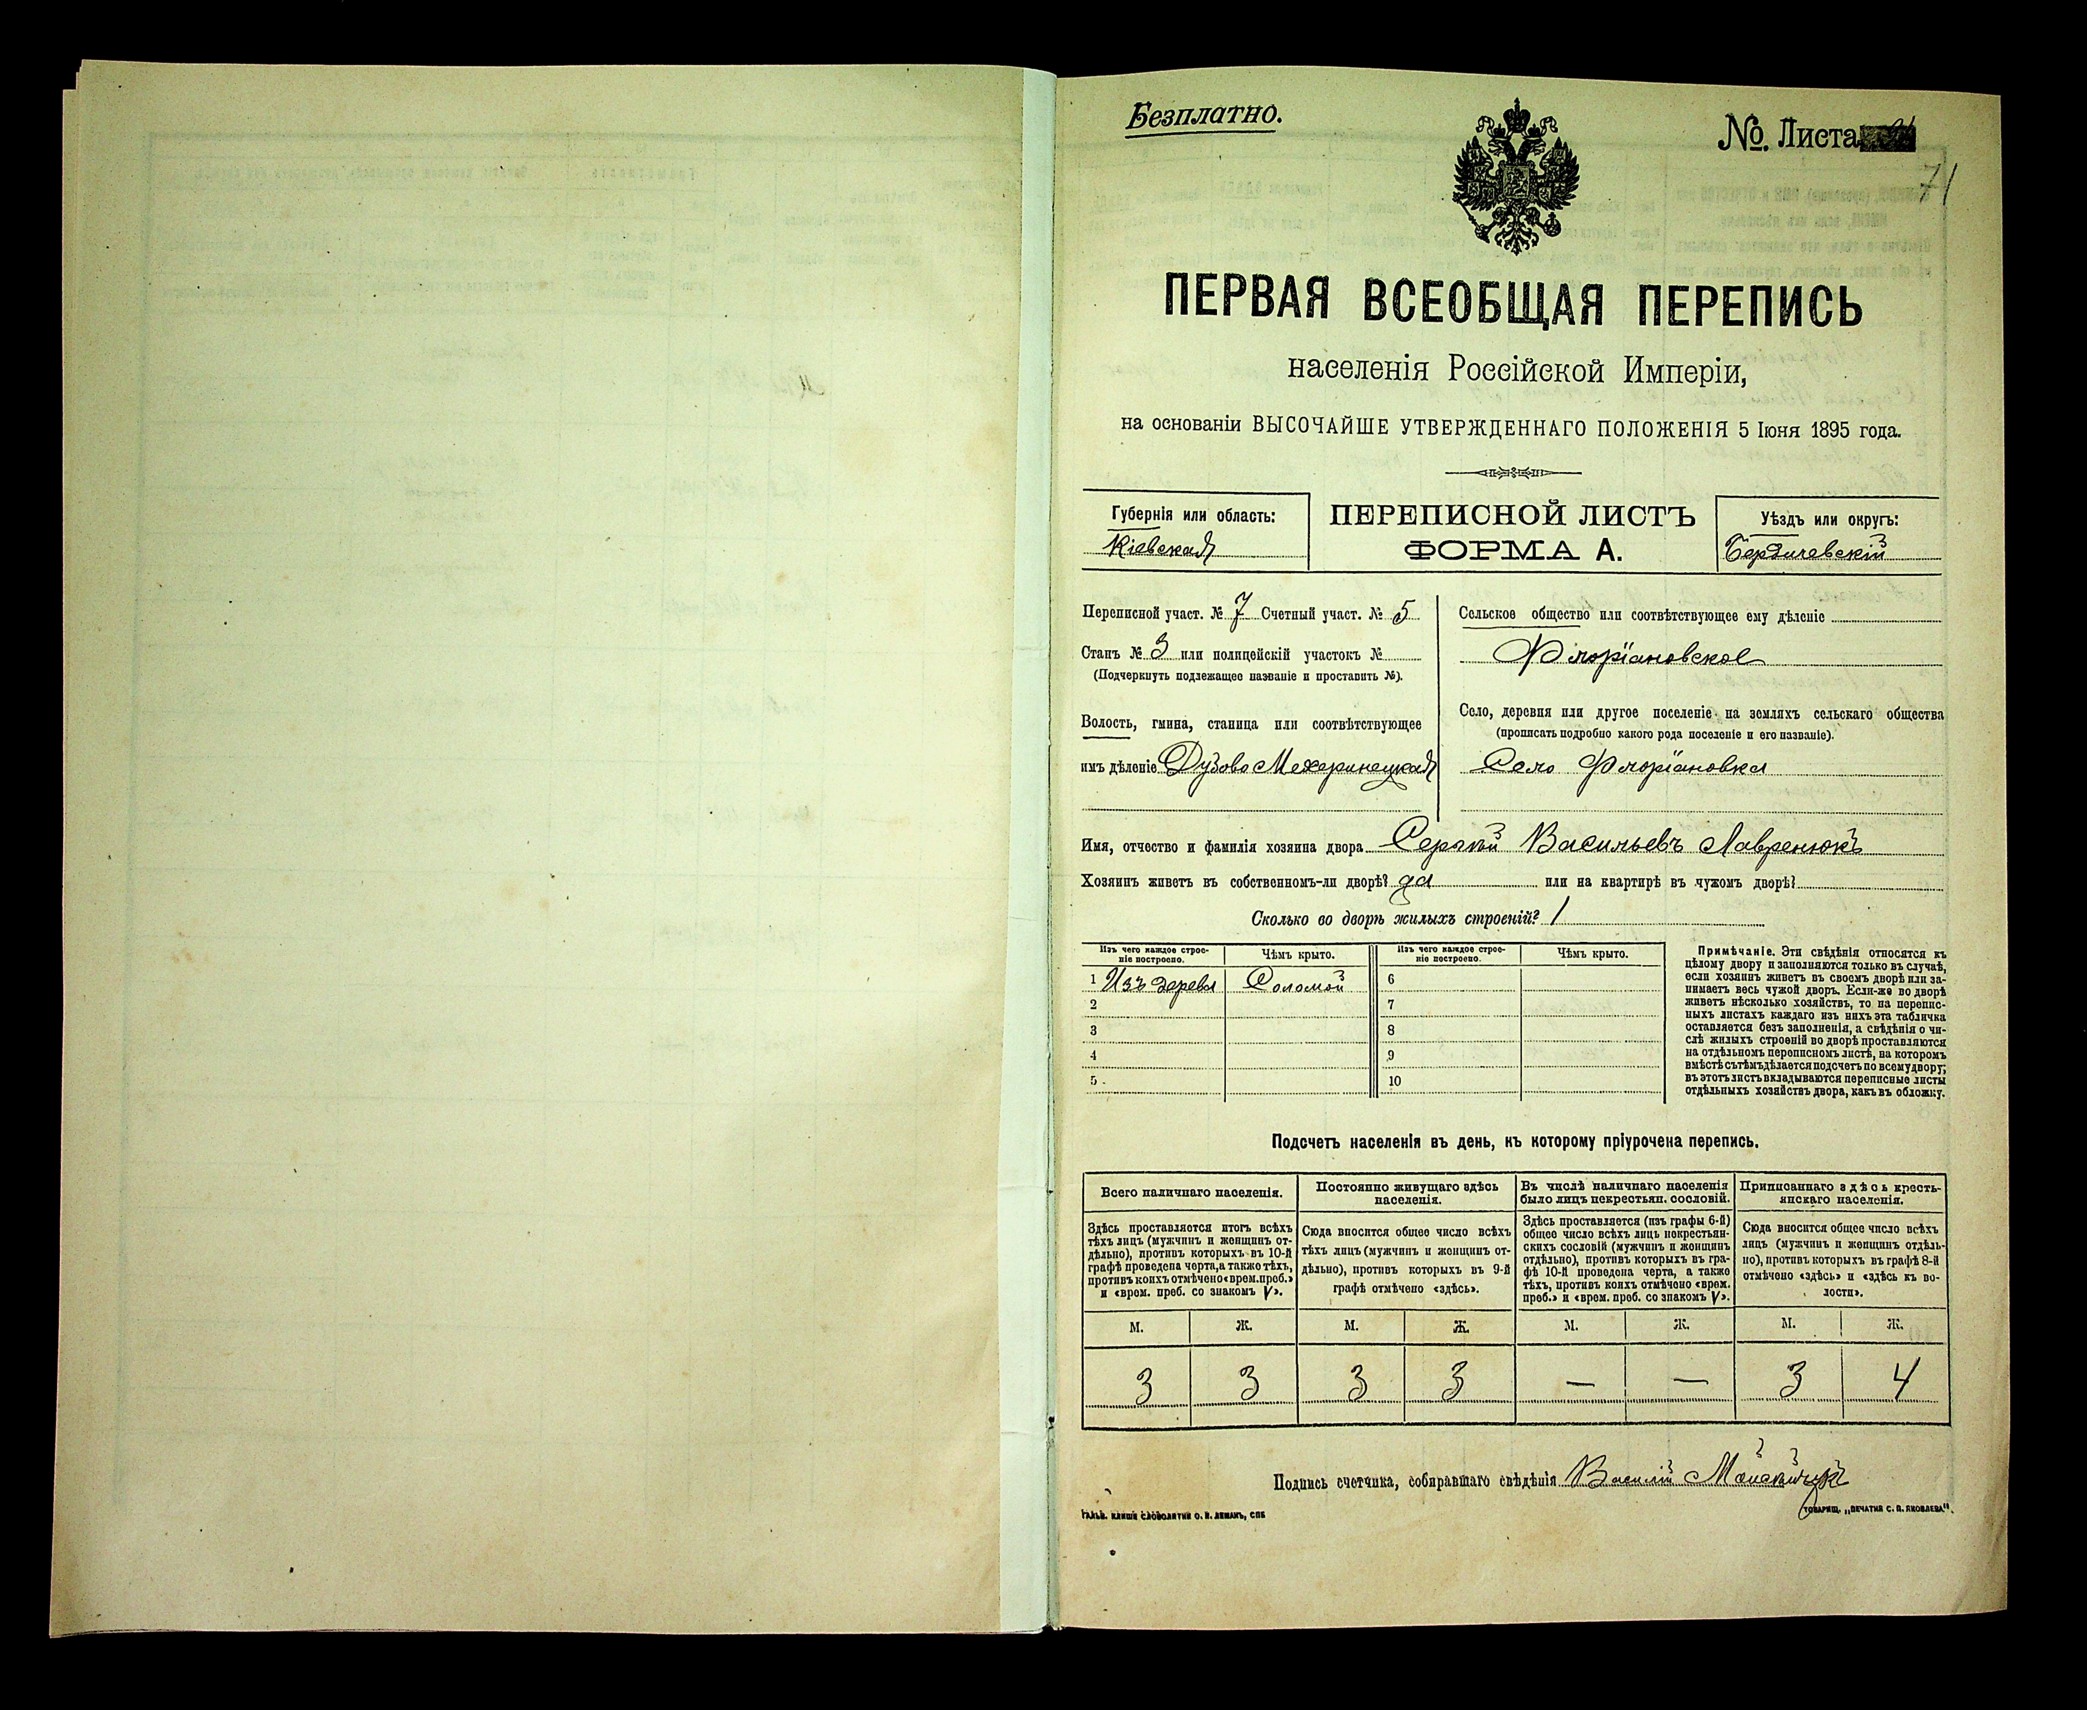 Безплатно.
№. Листа
71
ПЕРВАЯ ВСЕОБЩАЯ ПЕРЕПИСЬ
населенія Россійской Имперіи,
на основаніи ВЫСОЧАЙШЕ УТВЕРЖДЕННАГО ПОЛОЖЕНІЯ 5 Іюня 1895 года.
Губернія или область:
Кіевская
ПЕРЕПИСНОЙ ЛИСТЪ
ФОРМА А.
Уѣздъ или округъ:
Бердичевскій
Переписной участ. № 7 Счетный участ. № 5
Станъ № 3 или полицейскій участокъ №
(Подчеркнуть подлежащее названіе и проставить №).
Волость, гмина, станица или соотвѣтствующее
имъ дѣленіе Дузово Мехеринецкая
Сельское общество или соотвѣтствующее ему дѣленіе
Флоріановское
Село, деревня или другое поселеніе на земляхъ сельскаго общества
(прописать подробно какого рода поселеніе и его названіе).
Село Флоріановка
Имя, отчество и фамилія хозяина двора Сергѣй Васильевъ Лавренюкъ
Хозяинъ живетъ въ собственномъ-ли дворѣ? да или на квартирѣ въ чужомъ дворѣ?
Сколько во дворѣ жилыхъ строеній? 1
Изъ чего каждое строе-
ніе построено.
Чѣмъ крыто.
Изъ чего каждое строе-
ніе построено.
Чѣмъ крыто.
1 Изъ дерева Соломой 6
2 7
3 8
4 9
5 10
Примѣчаніе. Эти свѣдѣнія относятся къ
цѣлому двору и заполняются только въ случаѣ,
если хозяинъ живетъ въ своемъ дворѣ или за-
нимаетъ весь чужой дворъ. Если-же во дворѣ
живетъ нѣсколько хозяйствъ, то на перепис-
ныхъ листахъ каждаго изъ нихъ эта табличка
оставляется безъ заполненія, а свѣдѣнія о чи-
слѣ жилыхъ строеній во дворѣ проставляются
на отдѣльномъ переписномъ листѣ, на которомъ
вмѣстѣ съ тѣмъ дѣлается подсчетъ по всему двору;
въ этотъ листъ вкладываются переписные листы
отдѣльныхъ хозяйствъ двора, какъ въ обложку.
Подсчетъ населенія въ день, къ которому пріурочена перепись.
Всего наличнаго населенія.
Здѣсь проставляется итогъ всѣхъ
тѣхъ лицъ (мужчинъ и женщинъ от-
дѣльно), противъ которыхъ въ 10-й
графѣ проведена черта, а также тѣхъ,
противъ коихъ отмѣчено «врем. преб.»
и «врем. преб. со знакомъ V».
Постоянно живущаго здѣсь
населенія.
Сюда вносится общее число всѣхъ
тѣхъ лицъ (мужчинъ и женщинъ от-
дѣльно), противъ которыхъ въ 9-й
графѣ отмѣчено «здѣсь».
Въ числѣ наличнаго населенія
было лицъ некрестьян. сословій.
Здѣсь проставляется (изъ графы 6-й)
общее число всѣхъ лицъ некрестьян-
скихъ сословій (мужчинъ и женщинъ
отдѣльно), противъ которыхъ въ гра-
фѣ 10-й проведена черта, а также
тѣхъ, противъ коихъ отмѣчено «врем.
преб.» и «врем. преб. со знакомъ V».
Приписаннаго здѣсь кресть-
янскаго населенія.
Сюда вносится общее число всѣхъ
лицъ (мужчинъ и женщинъ отдѣль-
но), противъ которыхъ въ графѣ 8-й
отмѣчено «здѣсь» и «здѣсь въ во-
лости».
М. Ж. М. Ж. М. Ж. М. Ж.
3 3 3 3 — — 3 4
Подпись счетчика, собиравшаго свѣдѣнія Василій
ГАЛЬВ. КЛИШЕ СЛОВОЛИТНИ О. И. ЛЕМАНЪ, СПБ
ТОВАРИЩ. „ПЕЧАТНЯ С. П. ЯКОВЛЕВА“.